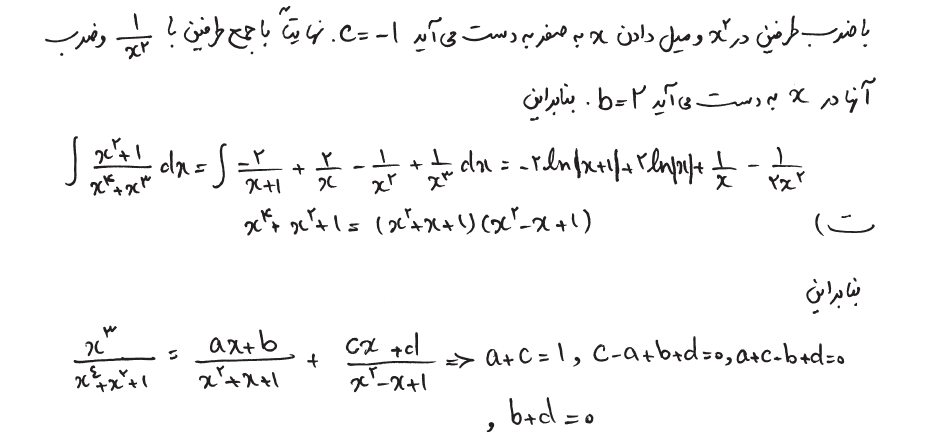 با ضرب طرفین در x² و میل دادن x به صفر به دست می‌آید c = -1. نهایتاً با جمع طرفین با 1/x² و ضرب
آنها در x به دست می‌آید b = ۲. بنابراین
∫ (x^۲+1)/(x^۴+x^۳) dx = ∫ -۲/(x+1) + ۲/x - 1/x^۲ + 1/x^۳ dx = -۲ln|x+1|+۲ln|x|+ 1/x - 1/(۲x^۲)
ت) x^۴ + x^۲+1 = (x^۲+x+1)(x^۲-x+1)
بنابراین
x^۳/(x^٤+x^۲+1) = (ax+b)/(x^۲+x+1) + (cx+d)/(x^۲-x+1) => a+c=1, c-a+b+d=0, a+c-b+d=0
, b+d=0